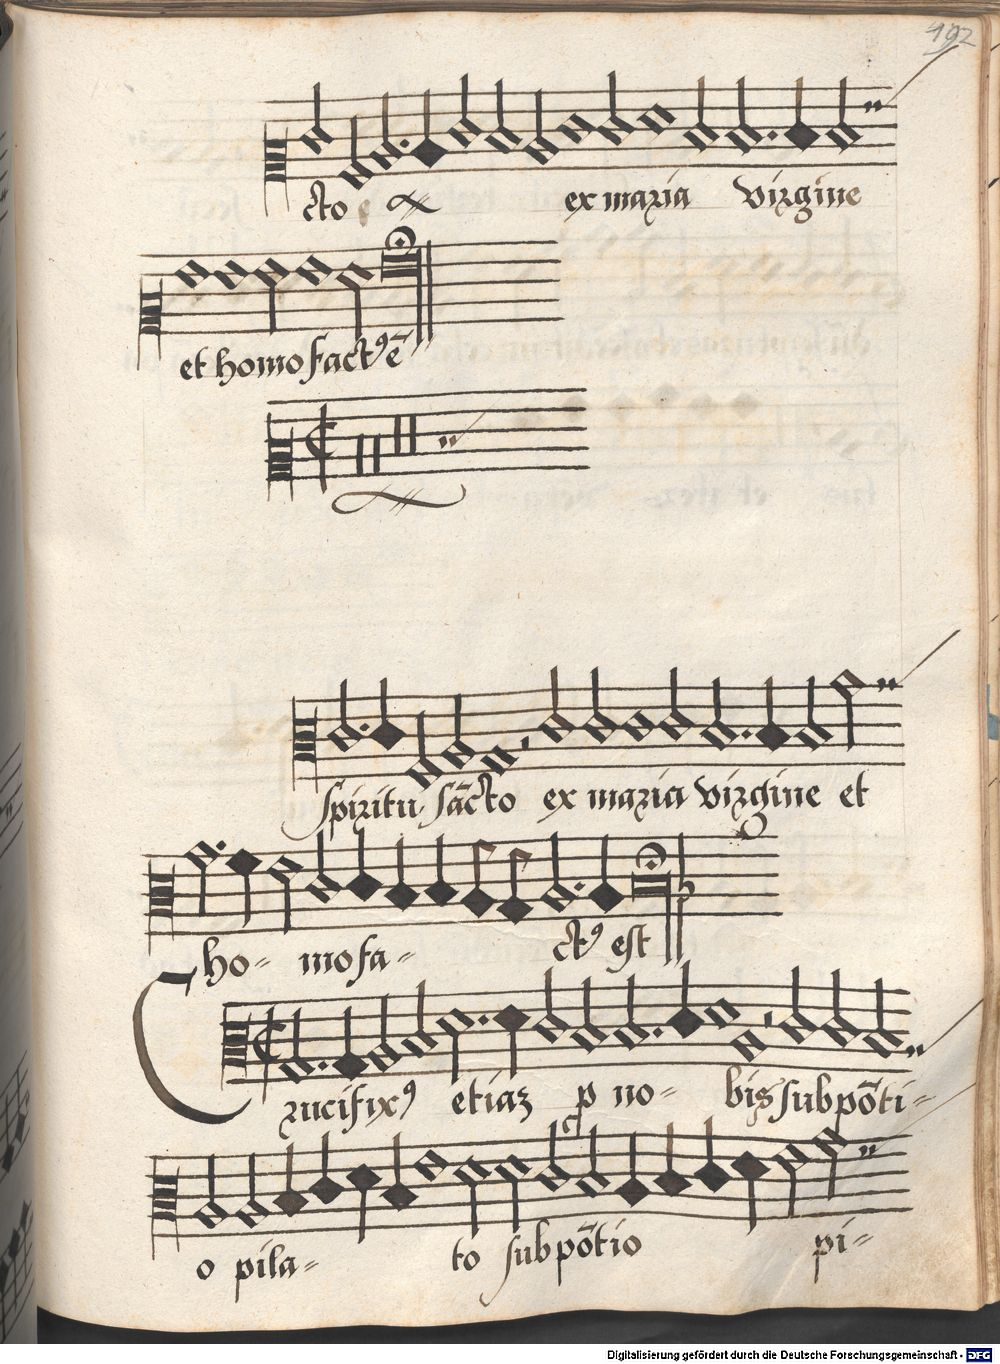 192
cto ex maria virgine
et homo fact9 ē
spiritu sācto ex maria virgine et
ho- mo fa- ct9 est
Crucifix9 etiaz p no- bis sub pōti-
o pila- to sub pōtio pi-
Digitalisierung gefördert durch die Deutsche Forschungsgemeinschaft - DFG